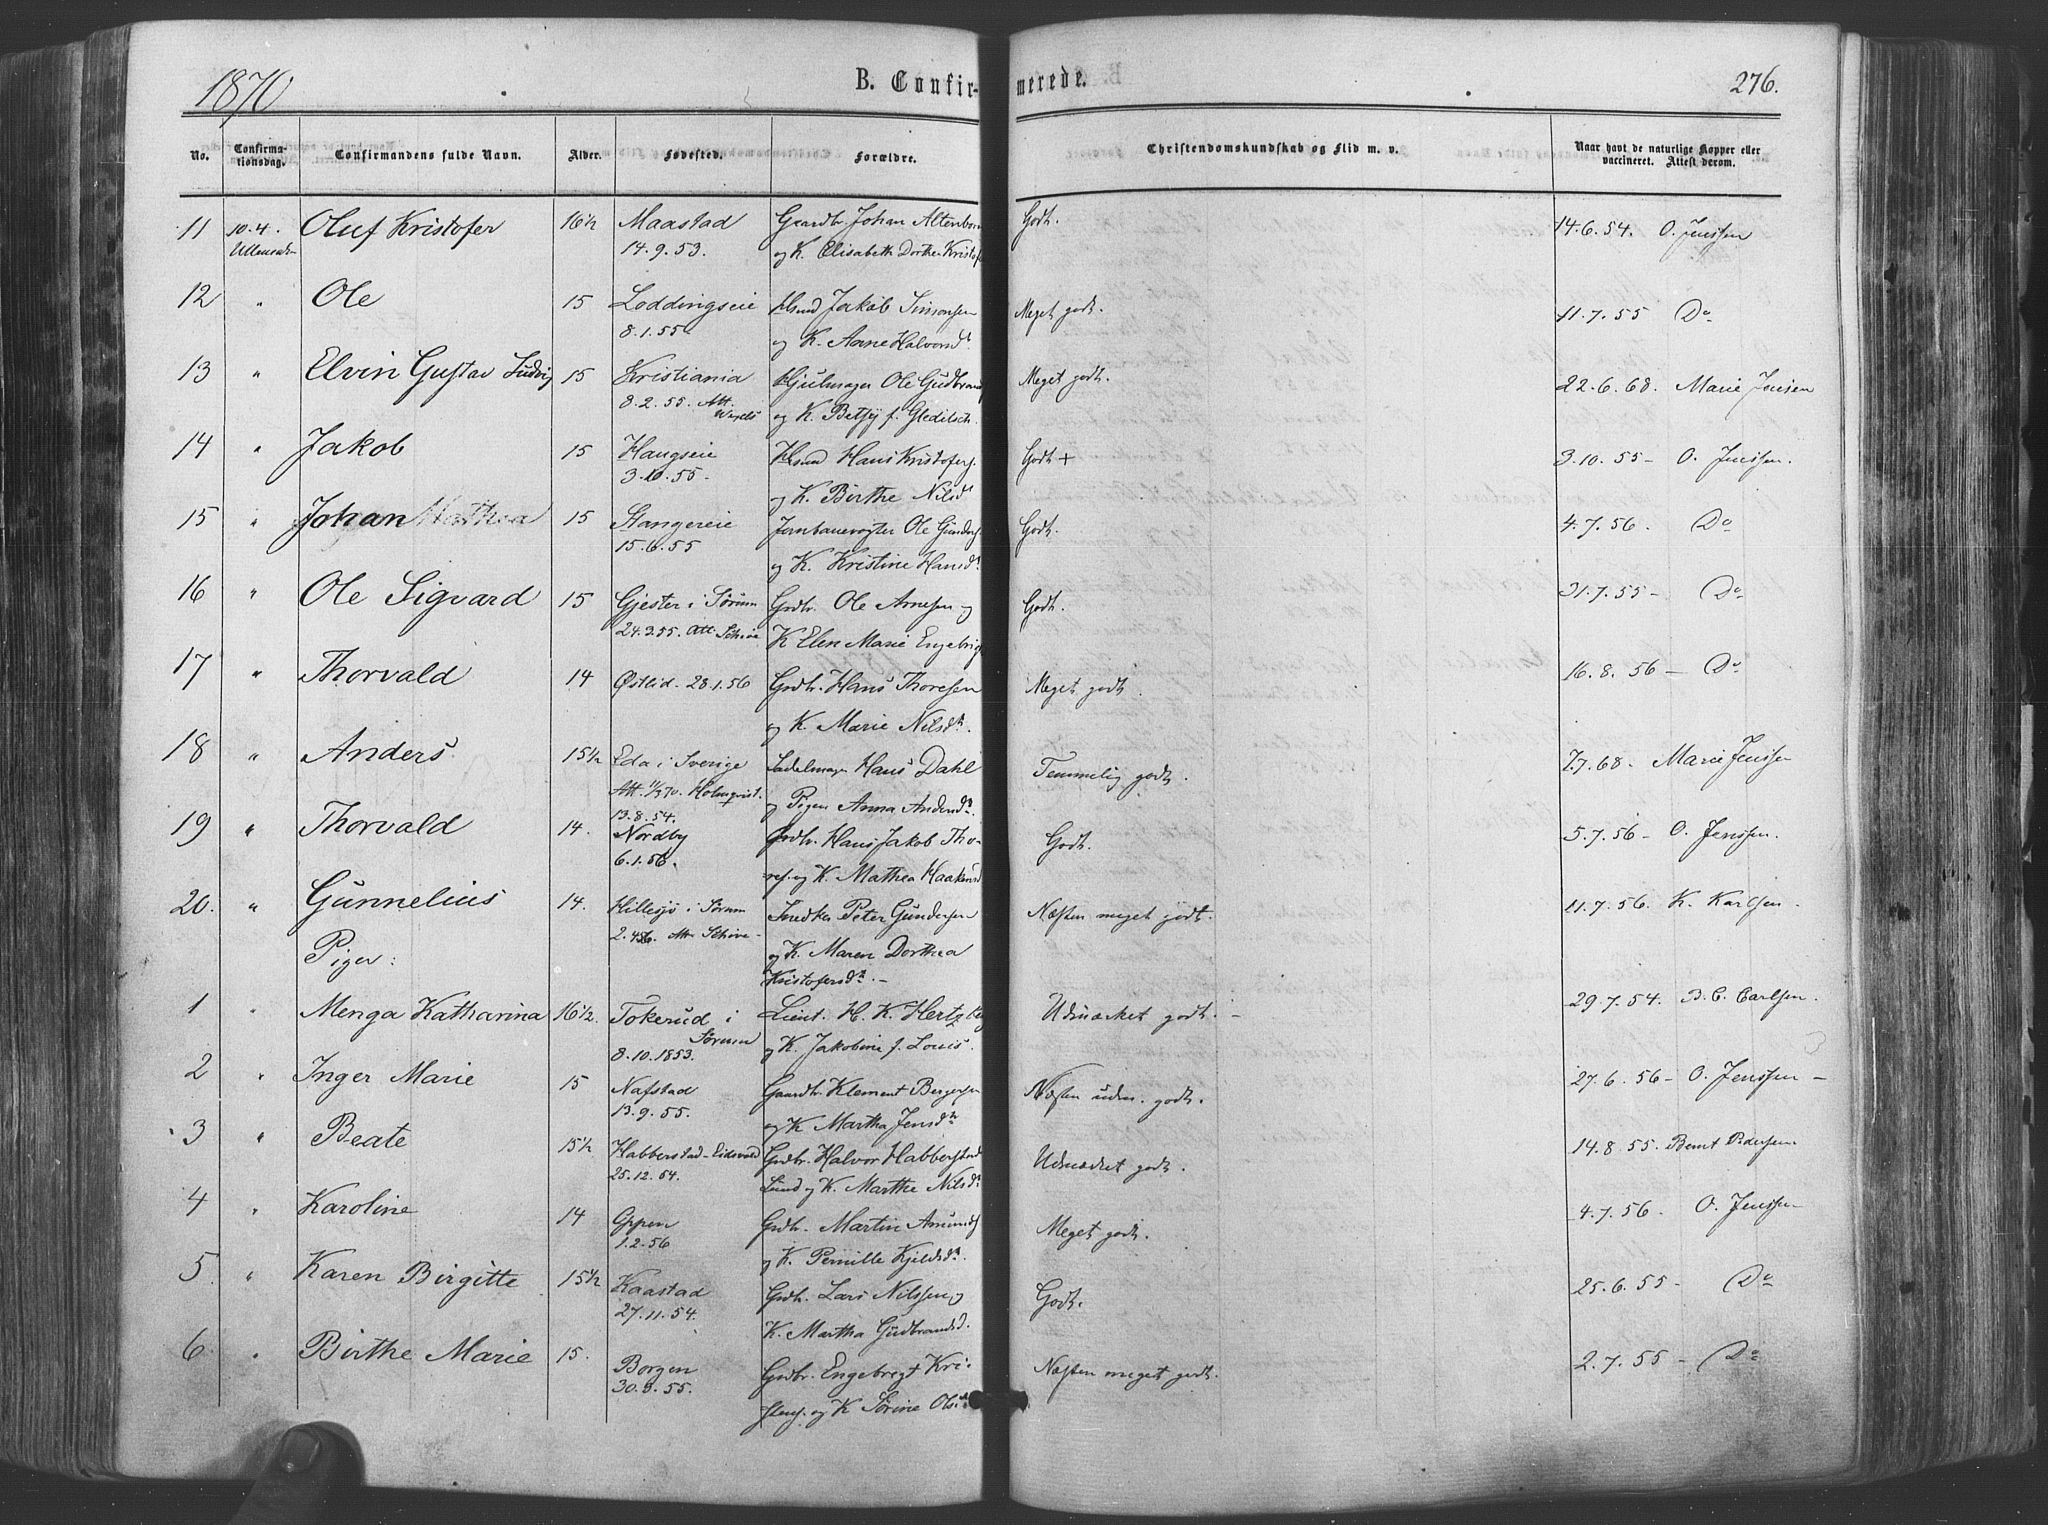 1870
B. Confirmerede.
276.
No.
Confirmationsdag.
Confirmandens fulde Navn.
Alder.
Fødested.
Forældre.
Christendomskundskab og Flid m. v.
Naar havt de naturlige Kopper eller vaccineret. Attest derom.
11 10.4. Oluf Kristofer 16½ Maastad Gaardbr. Johan Godt. 14.6.54. O. Jenssen
14.9.53. og K. Elisabeth
12 " Ole 15 Loddingseie Husmd Jakob Simonsen Meget godt. 11.7.55 Do
8.1.55. og K. Anne Halvorsdr
13 " Elvin Gustav Ludvig 15 Kristiania Hjulmager Ole Gudbrands Meget godt. 22.6.68. Marie Jensen
8.2.55. Att. og K. Betsy f. Gleditsch.
14 " Jakob 15 Haugseie Husmd Hans Kristofers. Godt + 3.10.55 - O. Jenssen.
3.10.55. og K. Birthe Nilsdr
15 " Johan 15 Stangereie Jernbanevogter Ole Gunders. Godt. 4.7.56. Do
15.6.55 og K. Kristine Hansdr.
16 " Ole Sigvard 15 Gjester i Sørum Grdbr. Ole Arnesen og Godt. 31.7.55 - Do
24.3.55. Att. K Elen Marie Engebrigts
17 " Thorvald 14 Østlid. 28.1.56 Grdbr. Hans Thoresen Meget godt. 16.8.56 - Do
og K. Marie Nilsdr.
18 " Anders 15½ Eda i Sverige Sadelmager Hans Dahl Temmelig godt. 7.7.68 - Marie Jenssen
Att. Holmqvist. og Pigen Anna Andersdr.
13.8.54.
19 " Thorvald 14. Nordby Grdbr. Hans Jakob Tho- Godt. 5.7.56 - O. Jenssen.
6.1.56. res. og K. Mathea Haakensd
20. " Gunnelius 14. Hillesjø i Sørum Snedker Peter Gundersen Næsten meget godt. 11.7.56. K. Karlsen.
Att. og K. Maren Dorthea
Piger: Kristofersdr. -
1 " Menga Katharina 16½. Tokerud i Lieut. H. K. Hertzberg Udmærket godt. - 29.7.54. B. C. Carlsen.
Sørum
8.10.1853. og K. Jakobine f. Louis.
2 " Inger Marie 15 Nafstad Gaardbr. Klement Bergersen Næsten udm. godt. 27.6.56 - O. Jenssen -
13.9.55. og K Martha Jensdr
3 " Beate 15½ Habberstad - Eidsvold Grdbr. Halvor Habberstad Udmærket godt. 14.8.55. Bernt Pedersen
25.12.54. Lund og K. Marthe Nilsdr.
4 " Karoline 14 Oppen Grdbr. Martin Amunds Meget godt. 4.7.56. O. Jenssen -
1.2.56 og K. Pernille Kjeldsdr.
5 " Karen Birgitte 15½ Kaastad Grdbr. Lars Nilssen og Godt. 25.6.55 - Do
27.11.54. K. Martha Gudbrandsd.
6 " Birthe Marie 15. Borgen Grdbr. Engebregt Kri- Næsten meget godt. 2.7.55 - Do
30.3.55. stens. og K Sørine Olsdr